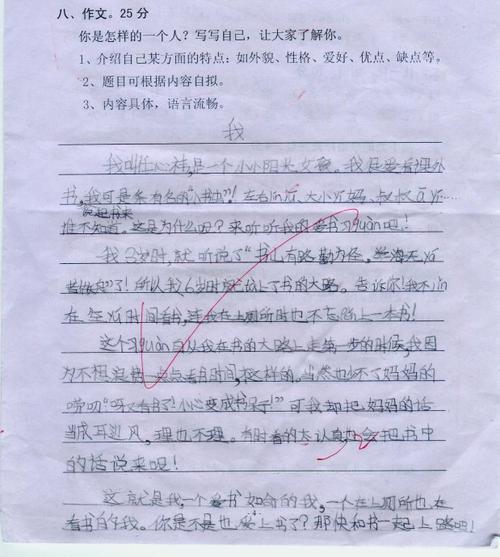 八、作文。25分
你是怎样的一个人？写写自己，让大家了解你。
1、介绍自己某方面的特点：如外貌、性格、爱好、优点、缺点等。
2、题目可根据内容自拟。
3、内容具体，语言流畅。
我
我叫任心祎，是一个小小阳光女孩。我挺爱看课外
书，我可是条有名的"小书虫"！左右lín jū、大小yí妈、叔叔
说起书来
谁不知道。这是为什么呢？来听听我的爱书习guàn吧！
我3岁时，就听说了"书山有路勤为径，学海无yá
苦作舟"了！所以我6岁时就站上了书的大路。告诉你！我不jǐn
在 时间看书，连我在上厕所时也不忘 上一本书！
这个习guàn自从我在书的大路上走第一步的时候，我因
为不想浪费一点点看书时间，这样的。当然也坏了妈妈的
唠叨"呀又看书了！小心变成书呆子！"可我却把妈妈的话
当成耳边风，理也不理。有时看的太认真也会把书中
的话说来呢！
这就是我，一个爱书如命的我，一个在上厕所也在
看书的我。你是不是也爱上书了？那快和书一起上路吧！